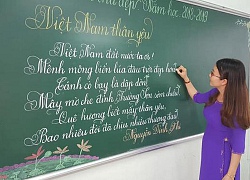 chữ đẹp Năm học 2018-2019
Việt Nam thân yêu
Việt Nam đất nước ta ơi!
Mênh mông biển lúa đâu trời đẹp hơn
Cánh cò bay lả dập dờn
Mây mờ che đỉnh Trường Sơn sớm chiều
Quê hương biết mấy thân yêu,
Bao nhiêu đời đã chịu nhiều thương đau
Nguyễn Đình